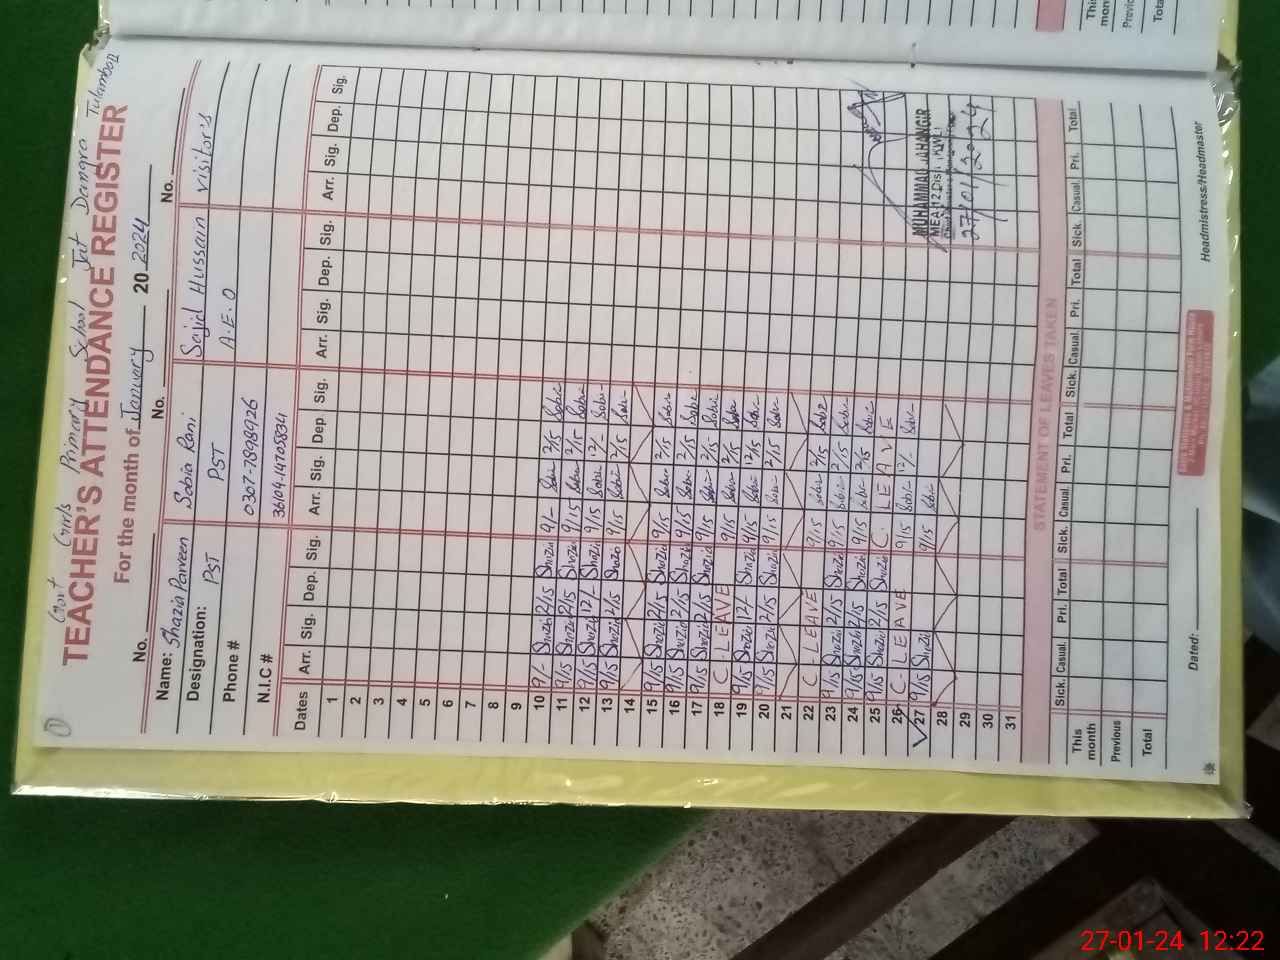 Govt Girls Primary School Jat Dangra Tulamboh
TEACHER'S ATTENDANCE REGISTER
For the month of January 20 2024
No. No. No.
Name: Shazia Parveen Sobia Rani Sajid Hussain visitor's
Designation: PST PST A.E.O
Phone # 0307-7898926
N.I.C #
Dates Arr. Sig. Dep. Sig. Arr. Sig. Dep. Sig. Arr. Sig. Dep. Sig. Arr. Sig. Dep. Sig.
1
2
3
4
5
6
7
8
9
10 9/- Shazia 2/15 Shazia 9/- Sobi 2/15 Sobi
11 9/15 Shazia 2/15 Shazia 9/15 Sobi 2/15 Sobi
12 9/15 Shazia 12/- Shazia 9/15 Sobi 12/- Sobi
13 9/15 Shazia 2/15 Shazia 9/15 Sobi 2/15 Sobi
14
15 9/15 Shazia 2/15 Shazia 9/15 Sobi 2/15 Sobi
16 9/15 Shazia 2/15 Shazia 9/15 Sobi 2/15 Sobi
17 9/15 Shazia 2/15 Shazia 9/15 Sobi 2/15 Sobi
18 C LEAVE 9/15 Sobi 2/15 Sobi
19 9/15 Shazia 12/- Shazia 9/15 Sobi 12/15 Sobi
20 9/15 Shazia 2/15 Shazia 9/15 Sobi 2/15 Sobi
21
22 C LEAVE 9/15 Sobi 2/15 Sobi
23 9/15 Shazia 2/15 Shazia 9/15 Sobi 2/15 Sobi
24 9/15 Shazia 2/15 Shazia 9/15 Sobi 2/15 Sobi
25 9/15 Shazia 2/15 Shazia C. LEAVE
26 C- LEAVE 9/15 Sobi 12/- Sobi
27 9/15 Shazia 9/15 Sobi
28
29
30
31
MUHAMMAD JAHANGIR
MEA
27/01/2024
STATEMENT OF LEAVES TAKEN
Sick. Casual. Pri. Total Sick. Casual. Pri. Total Sick. Casual. Pri. Total Sick. Casual. Pri. Total
This month
Previous
Total
Dated: Headmistress/Headmaster
This month
Total
27-01-24 12:22